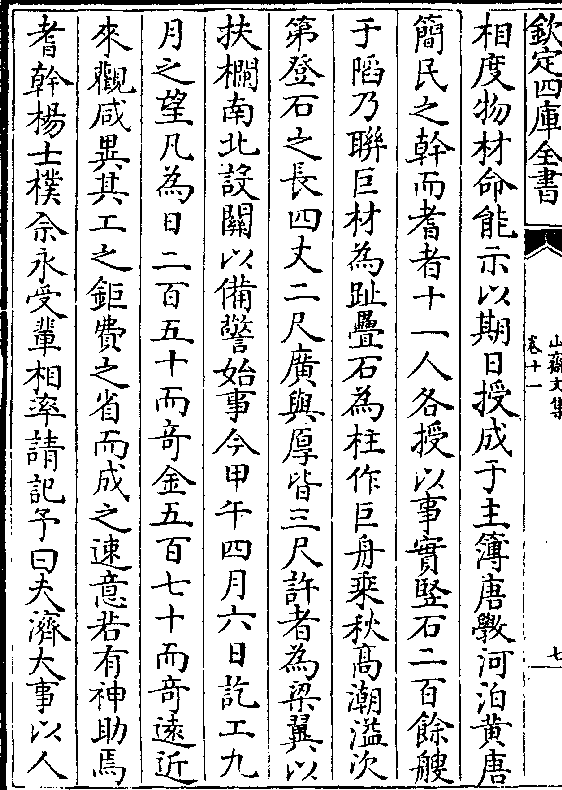 欽定四庫全書
山齋文集
卷十一
七
相度物材命能示以期日授成于主簿唐斆河泊黄唐
簡民之幹而耆者十一人各授以事實竪石二百餘艘
于陷乃聯巨材為趾疊石為柱作巨舟乘秋髙潮溢次
第登石之長四丈二尺廣與厚皆三尺許者為梁翼以
扶欄南北設關以備警始事今甲午四月六日訖工九
月之望凡為日二百五十而竒金五百七十而竒逺近
來觀咸異其工之鉅費之省而成之速意若有神助焉
耆幹楊士樸佘永受輩相率請記予曰夫濟大事以人